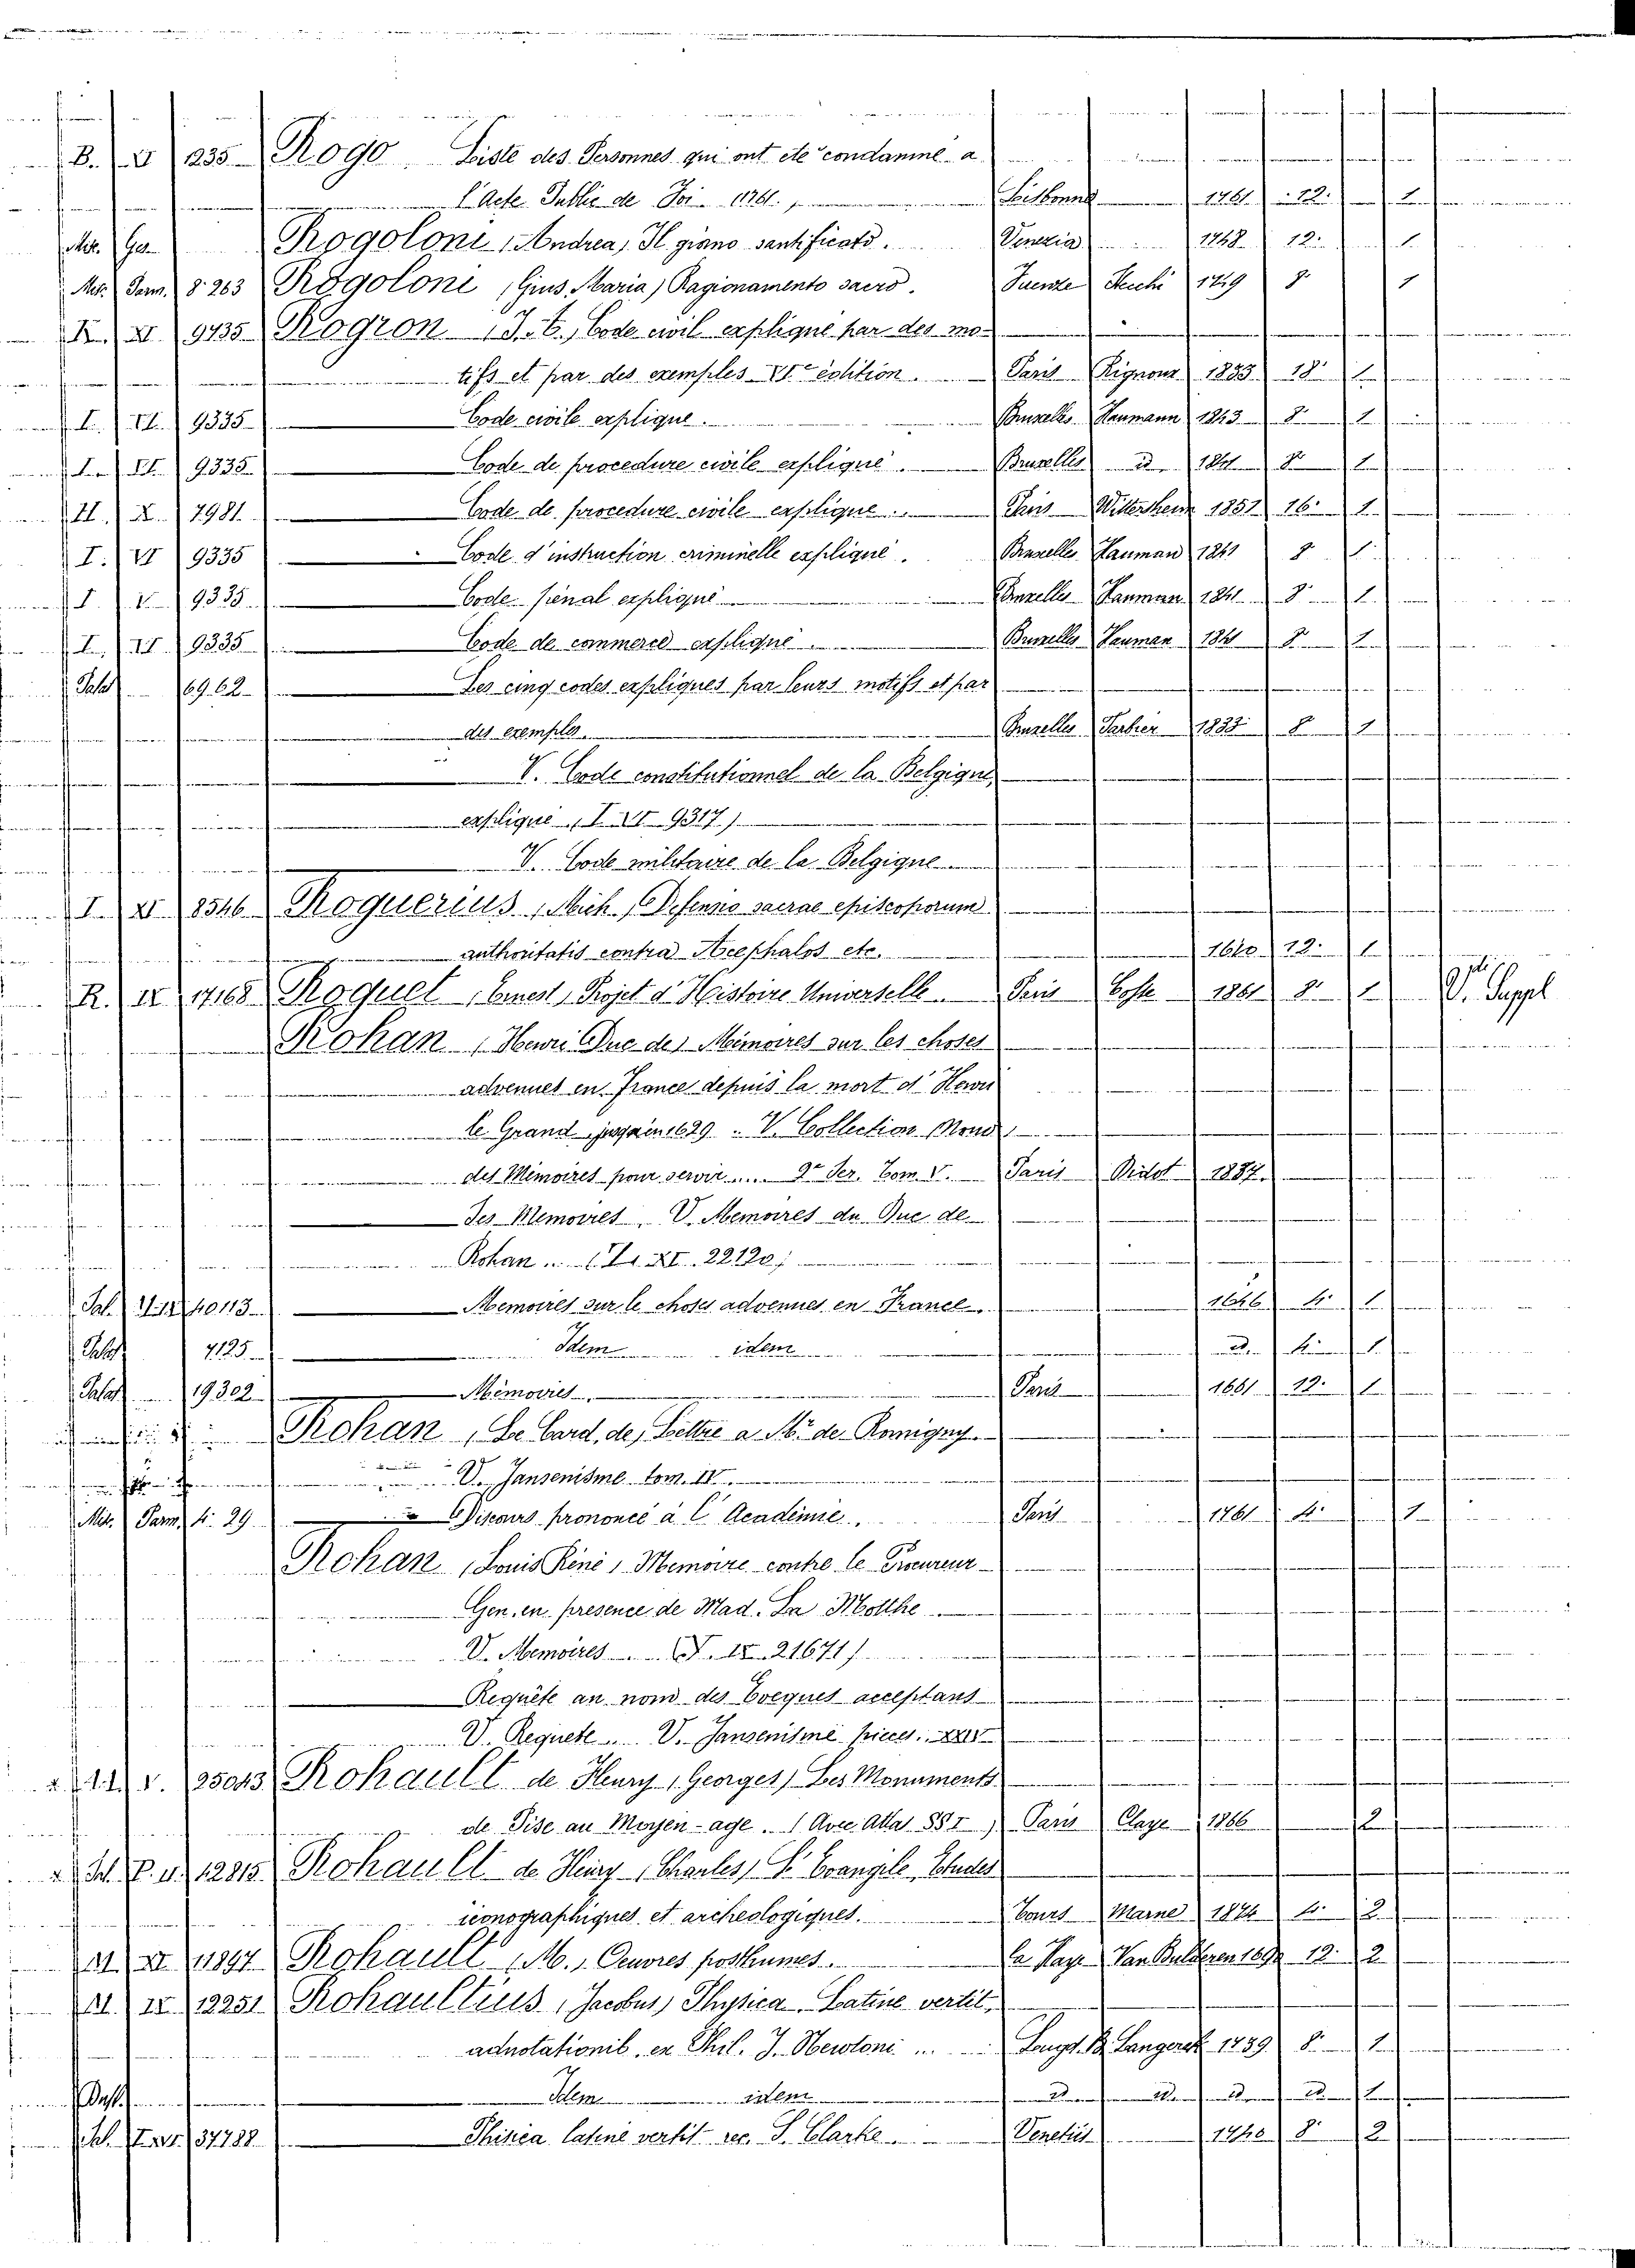 B. VI 1235 Rogo Liste des Personnes qui ont ete condamné a
l'Acte Public de Foi 1761. Lisbonne 1761 12. 1
Mel. Ger. Rogoloni (Andrea) Il giano santificato. Venezia 1748 12. 1
Mel. Parm. 8. 263 Rogoloni (Gius. Maria) Ragionamento sacro. 1749 8. 1
K. XI 9735 Rogron (J. A.) Code civil expliqué par des mo-
tifs et par des exemples VI edition. Paris Rignoux 1833 18. 1
I. VI. 9335 Code civile explique. Bruxelles Haumann 1843 8. 1
I. VI. 9335 Code de procedure civile expliqué. Bruxelles id. 1841 8. 1
II. X. 7981 Code de procedure civile explique. Paris Wittersheim 1851 16. 1
I. VI 9335 Code d'instruction criminelle expliqué. Bruxelles Hauman 1841 8. 1
I. VI 9335 Code penal expliqué Bruxelles Hauman 1841 8. 1
I. VI 9335 Code de commerce expliqué. Bruxelles Hauman 1841 8. 1
Palat 6962 Les cinq codes expliqués par leurs motifs et par
des exemples. Bruxelles Tarlier 1833 8 1
V. Code constitutionnel de la Belgique,
expliqué (I. VI 9317)
V. Code militaire de la Belgique
I. XI 8546 Roguerius (Mich.) Defensio sacrae episcoporum
authoritatis contra Acephalos etc. 1610 12. 1
R. IX 17168 Roquet (Ernest) Projet d'Histoire Universelle. Paris Cosse 1861 8. 1 V. Suppl
Rohan (Henri Duc de) Mémoires sur les choses
advenues en France depuis la mort d'Henri
le Grand jusqu'en 1629. V. Collection Nouv.
des Mémoires pour servir .... 2e Ser. Tom. V. Paris Didot 1837.
Ses Memoires. V. Memoires du Duc de
Rohan ... XI. 22120)
Sal. 40113 Memoires sur le choses advenues en France. 1646 4. 1
Palat 7125 Idem idem id. 4. 1
Palat 19302 Mémoires. Paris 1661 12. 1
Rohan (Le Card. de) Lettre a Mr. de Romigny.
V. Jansenisme tom. IV.
Mel. Parm. 4. 29 Discours prononcé à l'Academie. Paris 1761 4. 1
Rohan (Louis René) Memoire contre le Procureur
Gen. en presence de Mad. La Motthe
V. Memoires ... IX. 21671)
Requête au nom des Eveques acceptans
V. Requete .. V. Jansenisme pieces. XXIV
V. 25043 Rohault de Fleury (Georges) Les Monuments
de Pise au Moyen-age. (Avec Atlas) Paris Claye 1866 2
12815 Rohault de Fleury (Charles) L'Evangile, Etudes
iconographiques et archeologiques. Tours Mame 1874 4. 2
M. XI 11897 Rohault (M.) Oeuvres posthumes. la Haye Van Bulderen 1690 12. 2
M. IX 12251 Rohaultius (Jacobus) Physica. Latine vertit,
adnotationib. ex Phil. J. Newtoni ... Lugd. B. Langerak 1739 8. 1
Idem idem id. id. id. id. 1
37788 Phisica latine vertit rec. S. Clarke. Venetiis 1740 8. 2